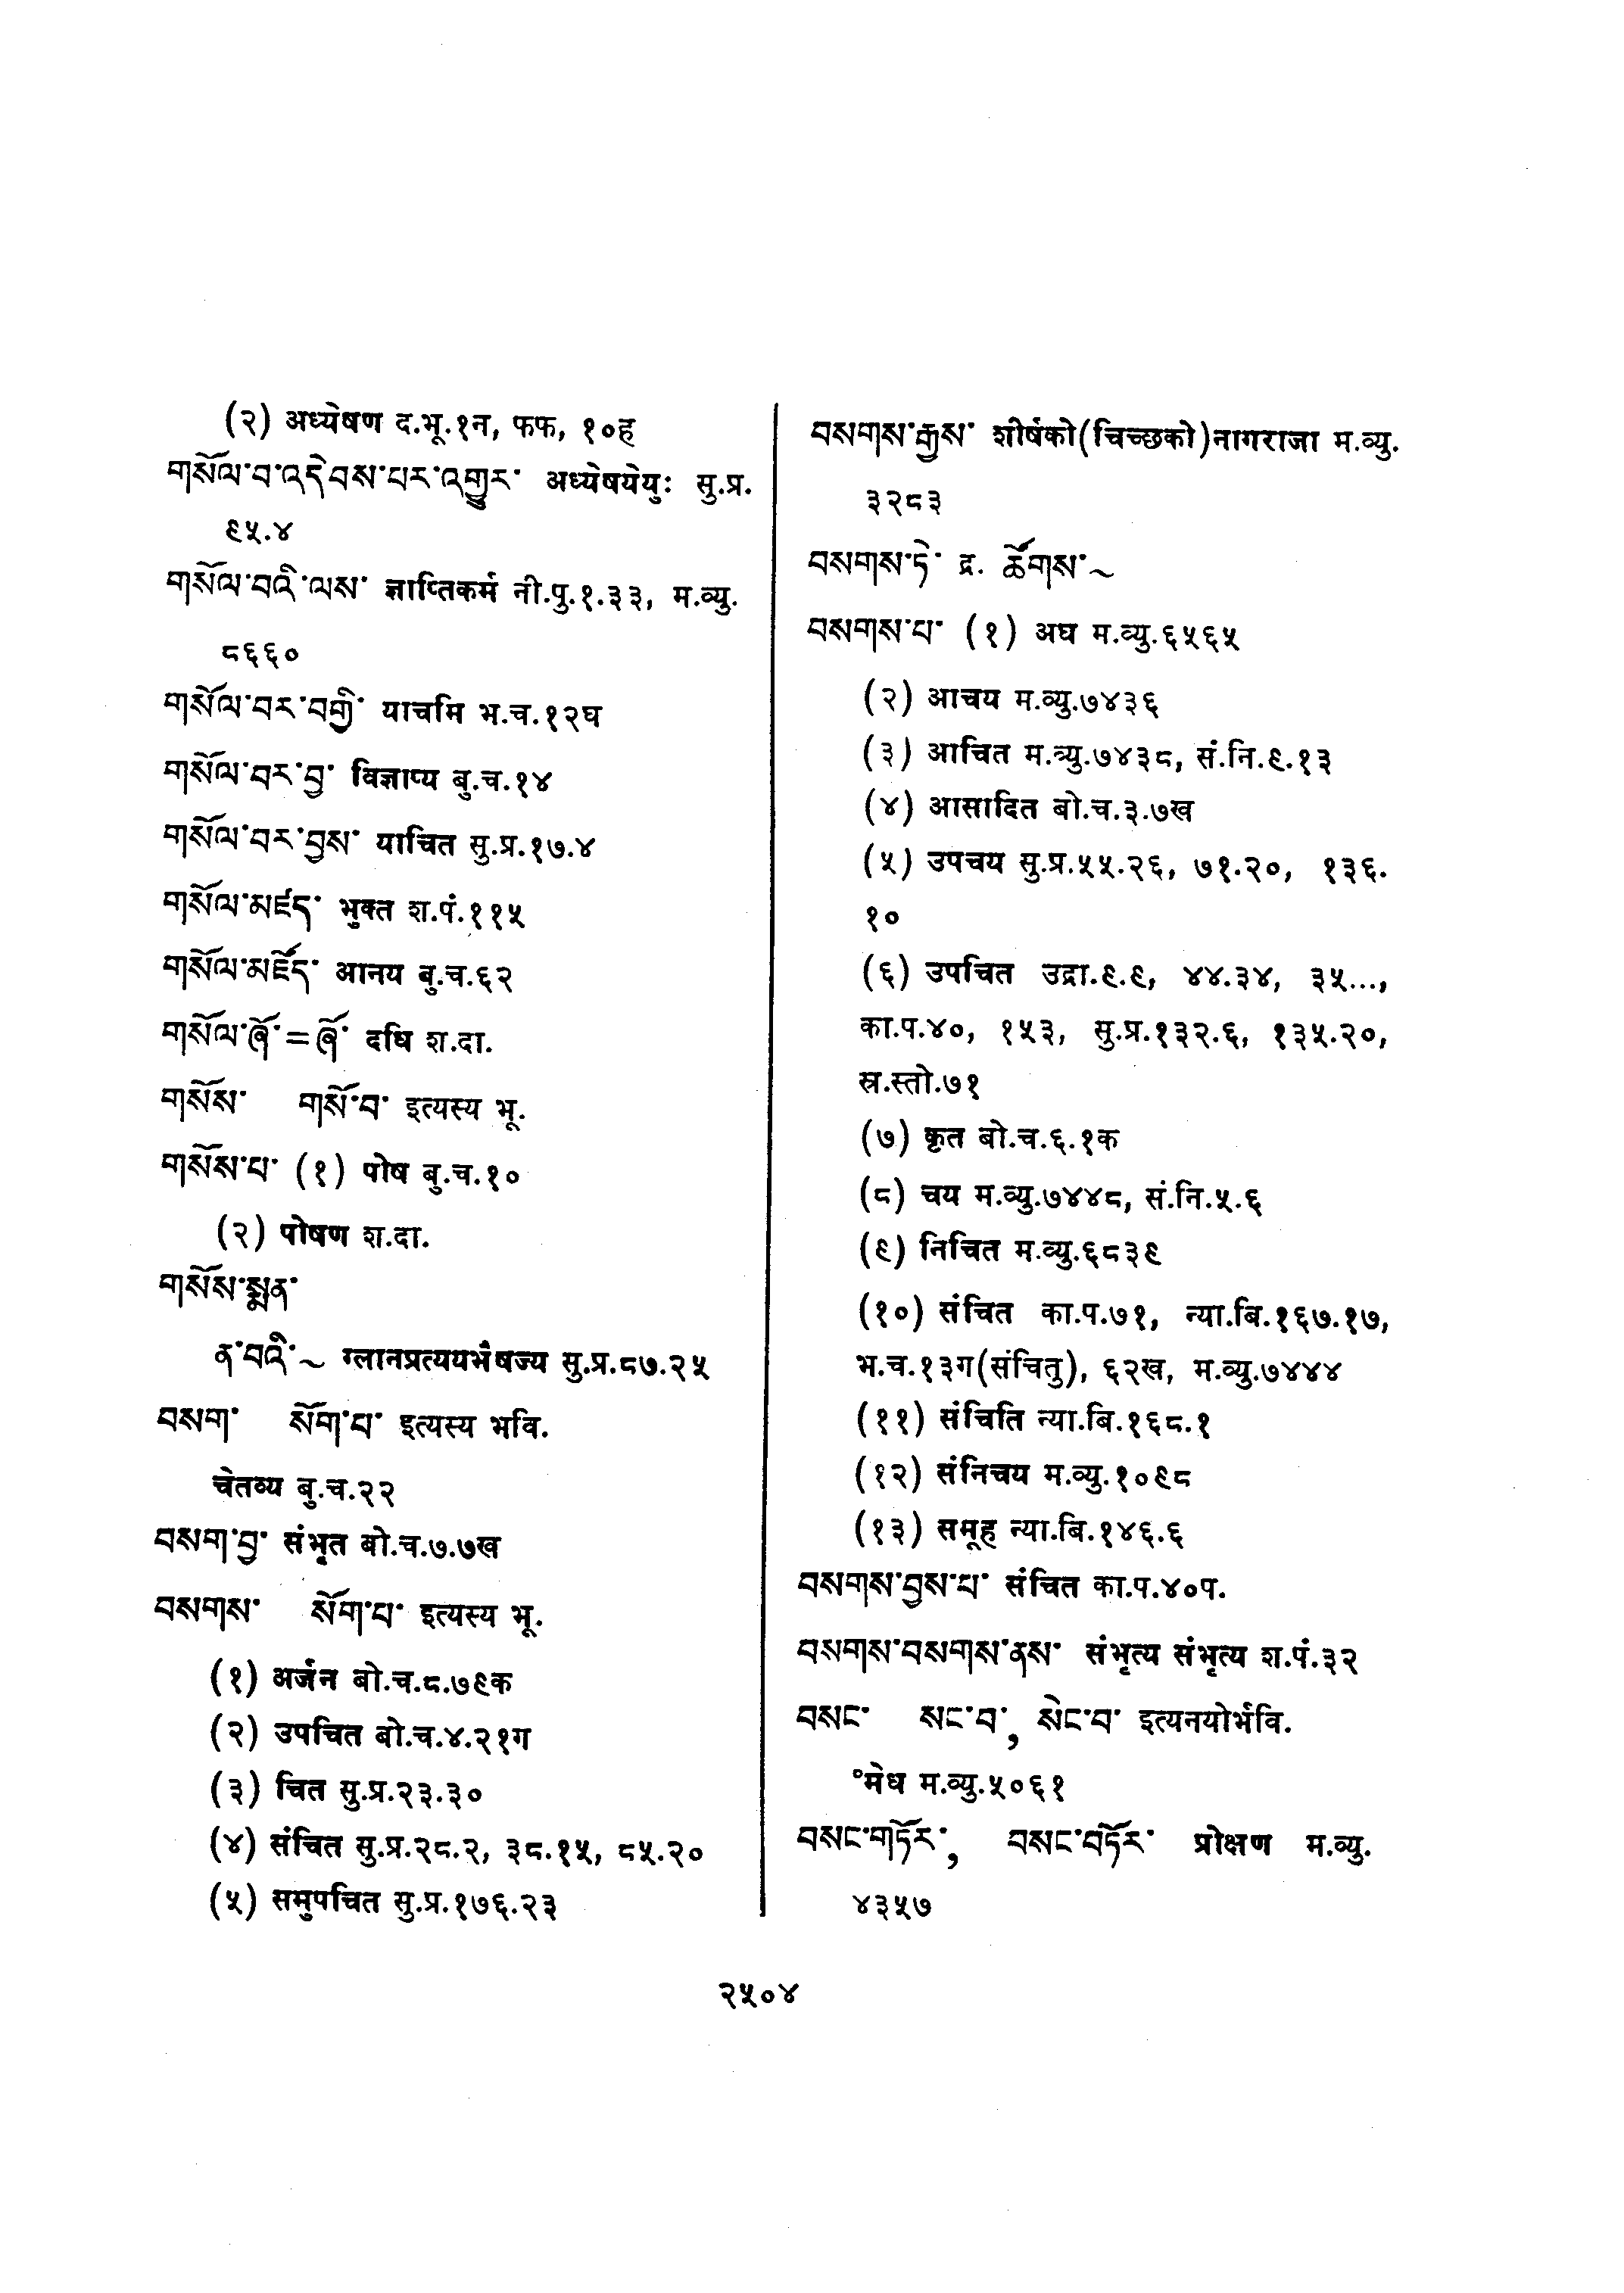 (२) अध्येषण द.भू.१न, फफ, १०ह
གསོལ་བ་འདེབས་པར་འགྱུར་ अध्येषयेयुः सु.प्र.
९५.४
གསོལ་བའི་ལས་ ज्ञाप्तिकर्म नी.पु.१.३३, म.व्यु.
८६६०
གསོལ་བར་བགྱི་ याचमि भ.च.१२घ
གསོལ་བར་བྱ་ विज्ञाप्य बु.च.१४
གསོལ་བར་བྱས་ याचित सु.प्र.१७.४
གསོལ་མཛད་ भुक्त श.पं.११५
གསོལ་མཛོད་ आनय बु.च.६२
གསོལ་ཞོ་=ཞོ་ दधि श.दा.
གསོས་ གསོ་བ་ इत्यस्य भू.
གསོས་པ་ (१) पोष बु.च.१०
(२) पोषण श.दा.
གསོས་སྨན་
ན་བའི་~ ग्लानप्रत्ययभैषज्य सु.प्र.८७.२५
བསག་ སོག་པ་ इत्यस्य भवि.
चेतव्य बु.च.२२
བསག་བྱ་ संभृत बो.च.७.७ख
བསགས་ སོག་པ་ इत्यस्य भू.
(१) अर्जन बो.च.८.७९क
(२) उपचित बो.च.४.२१ग
(३) चित सु.प्र.२३.३०
(४) संचित सु.प्र.२८.२, ३८.१५, ८५.२०
(५) समुपचित सु.प्र.१७६.२३
བསགས་རྒྱས་ शीर्षको(चिच्छको)नागराजा म.व्यु.
३२८३
བསགས་ཏེ་ द्र. ཚོགས་~
བསགས་པ་ (१) अघ म.व्यु.६५६५
(२) आचय म.व्यु.७४३६
(३) आचित म.व्यु.७४३८, सं.नि.९.१३
(४) आसादित बो.च.३.७ख
(५) उपचय सु.प्र.५५.२६, ७१.२०, १३६.
१०
(६) उपचित उद्रा.९.९, ४४.३४, ३५...,
का.प.४०, १५३, सु.प्र.१३२.६, १३५.२०,
स्र.स्तो.७१
(७) कृत बो.च.६.१क
(८) चय म.व्यु.७४४८, सं.नि.५.६
(९) निचित म.व्यु.६८३९
(१०) संचित का.प.७१, न्या.बि.१६७.१७,
भ.च.१३ग(संचितु), ६२ख, म.व्यु.७४४४
(११) संचिति न्या.बि.१६८.१
(१२) संनिचय म.व्यु.१०९८
(१३) समूह न्या.बि.१४६.६
བསགས་བྱས་པ་ संचित का.प.४०प.
བསགས་བསགས་ནས་ संभृत्य संभृत्य श.पं.३२
བསང་ སང་བ་, སེང་བ་ इत्यनयोर्भवि.
°मेध म.व्यु.५०६१
བསང་གཏོར་, བསང་བཏོར་ प्रोक्षण म.व्यु.
४३५७
२५०४